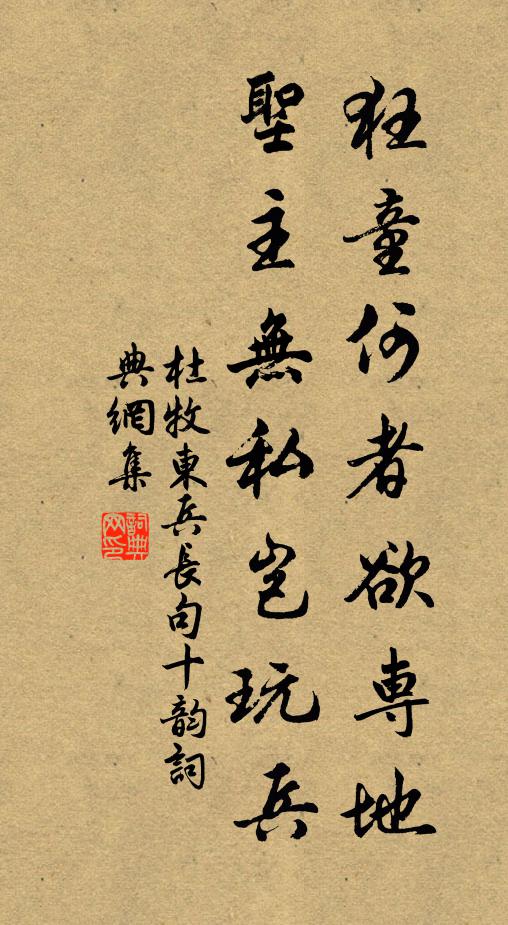 狂童何者欲專地
聖主無私岂玩兵
杜牧東兵長句十韵詞
典網集
詞典
网印